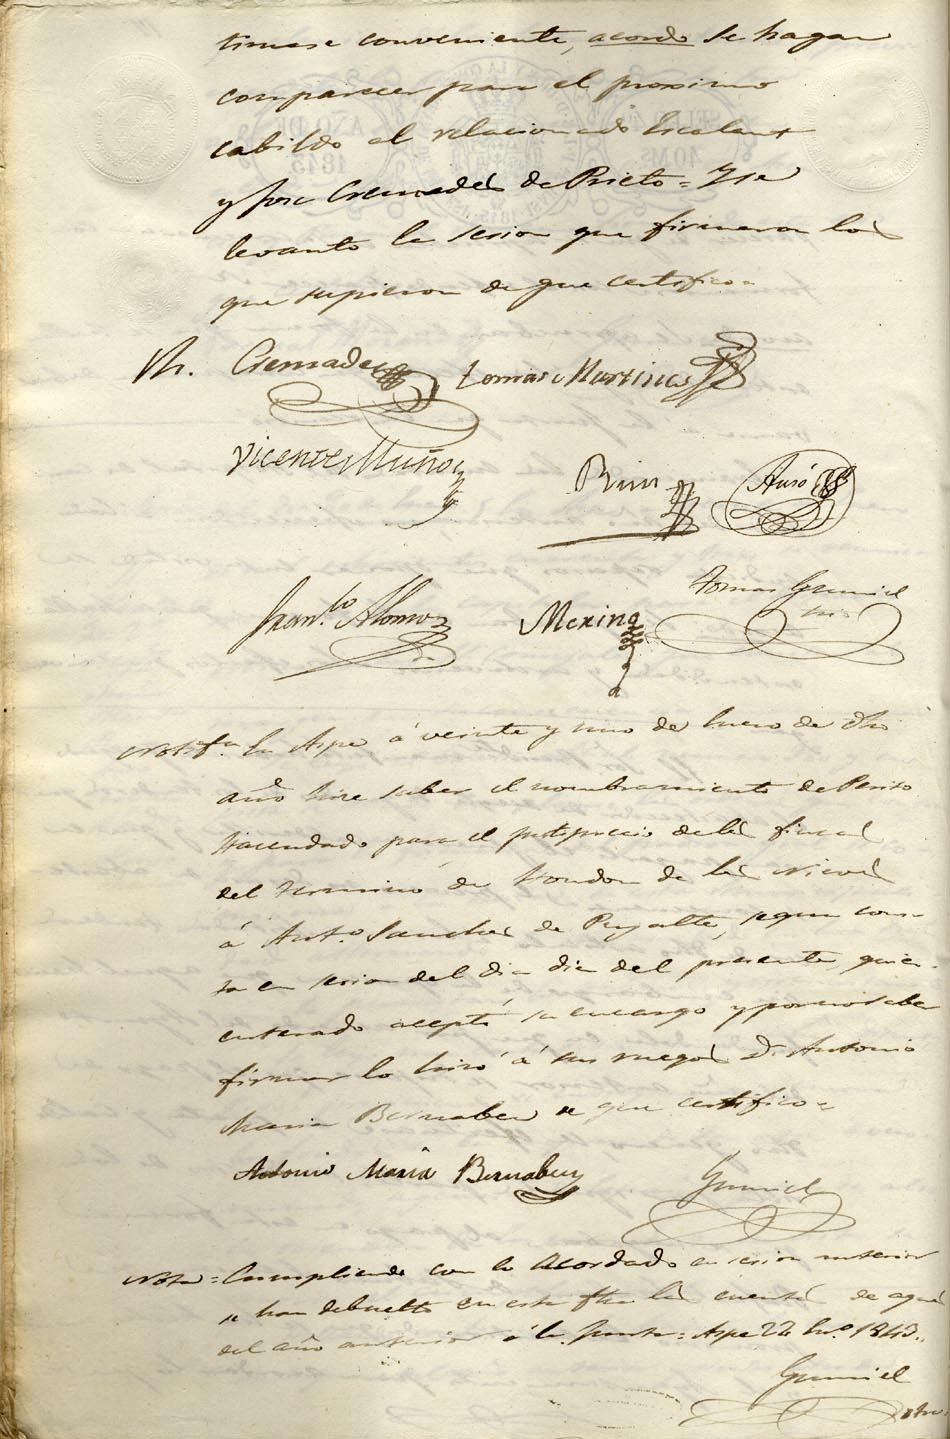 timase conveniente, acordo se hagan
comparecer para el proximo
cabildo al relacionado Escalant
y José Cremades de Prieto = Y se
levanto la sesion que firmaron los
que supieron de que certifico =
Cremades Tomas Martines
Vicente Muñoz
Ausó
Fran.co Alonso Merina Tomas Gumiel
Notif.n En Aspe á veinte y uno de Enero de dho
año hice saber el nombramiento de Perito
hacendado para el justiprecio de las fincas
del termino de Hondon de las Nieves
á Ant.o Sanches de Pujalte, segun cons-
ta en sesion del dia diez del presente, quien
enterado aceptó su encargo y por no saber
firmar lo hizó á sus ruegos D. Antonio
Maria Bernabeu de que certifico =
Antonio Maria Bernabeu Gumiel
Nota = Cumpliendo con lo acordado en sesion anterior
se han debuelto en esta fha las cuentas de aguas
del año anterior á la Junta = Aspe 22 En.o 1843.
Gumiel